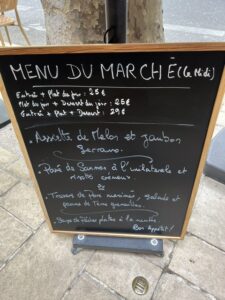 MENU DU MARCHÉ (Le Midi)
Entrée + Plat du jour : 25€
Plat du jour + Dessert du jour : 25€
Entrée + Plat + Dessert : 29€
. Assiette de Melon et jambon
Serrano.
. Pavé de Saumon à l'unilatérale et
risotto crémeux.
ou
. Travers de Porc marinés, salade et
pomme de Terre grenailles.
. Soupe de Pêches plates à la menthe.
Bon Appétit!